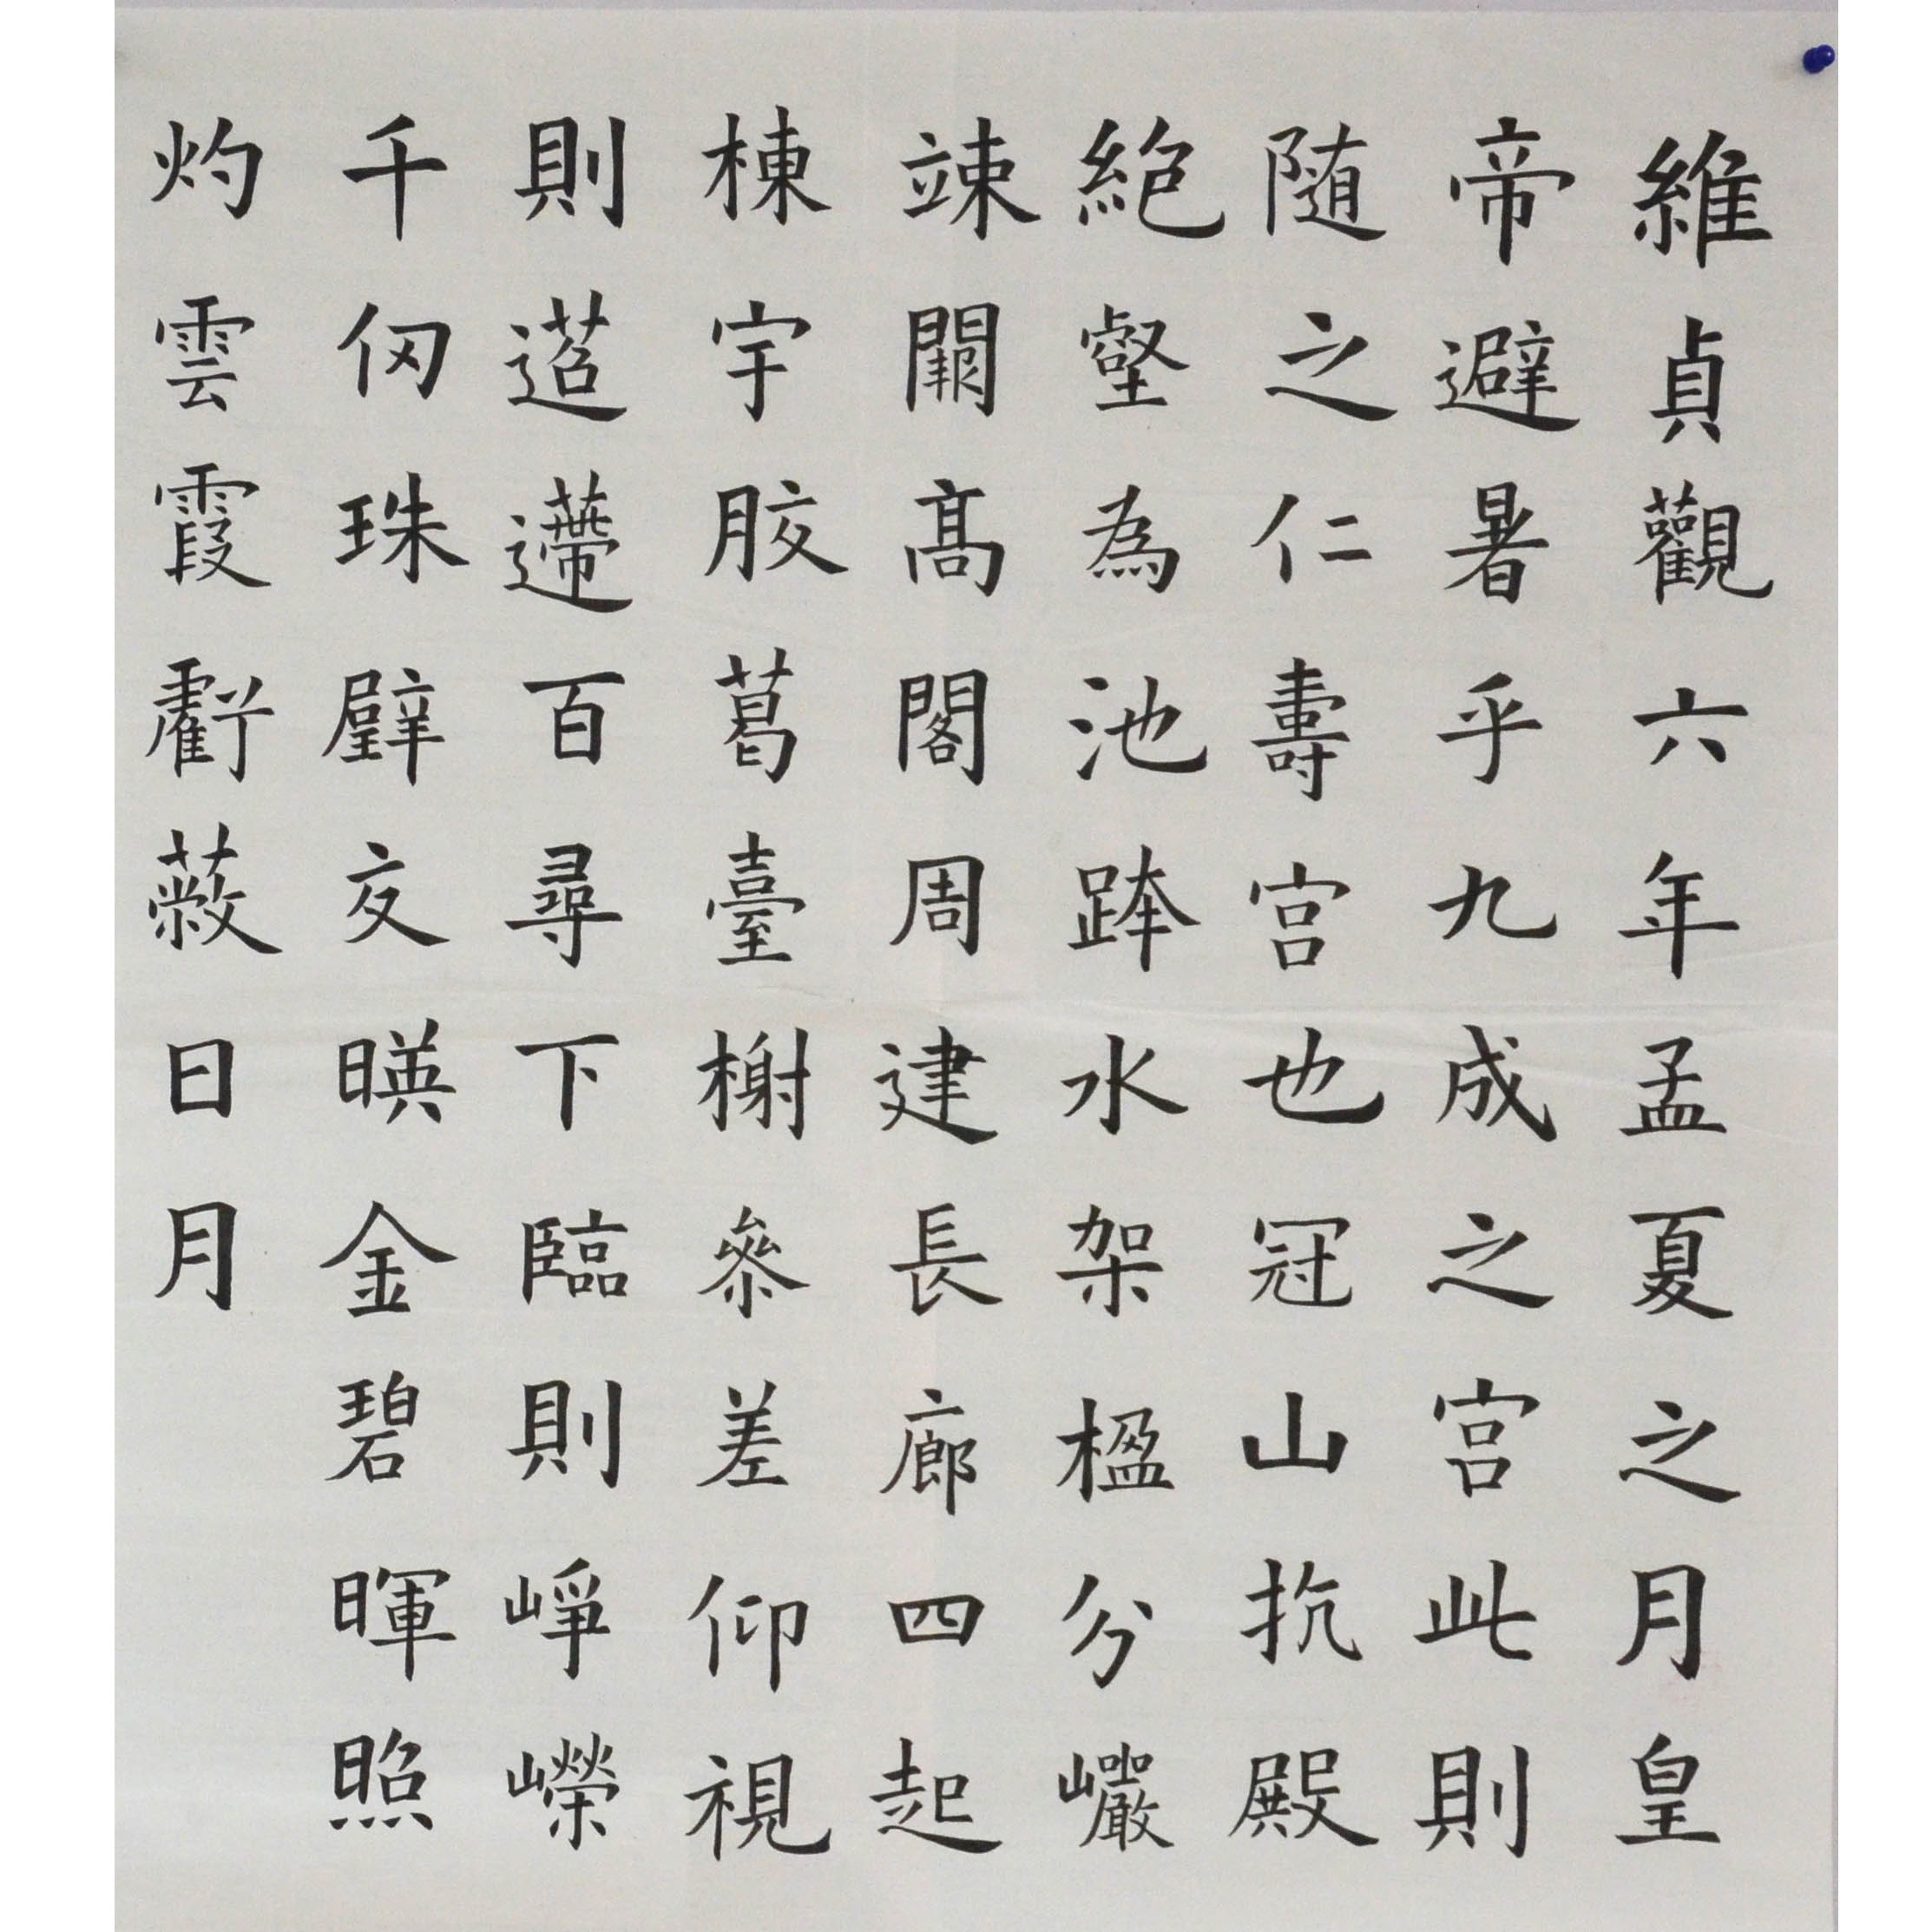 維貞觀六年孟夏之月皇
帝避暑乎九成之宫此則
随之仁壽宫也冠山抗殿
絶壑為池跨水架楹分巗
竦闕髙閣周建長廊四起
棟宇胶葛臺榭參差仰視
則迢遰百尋下臨則崢嶸
千仞珠璧交暎金碧暉照
灼雲霞虧蔽日月